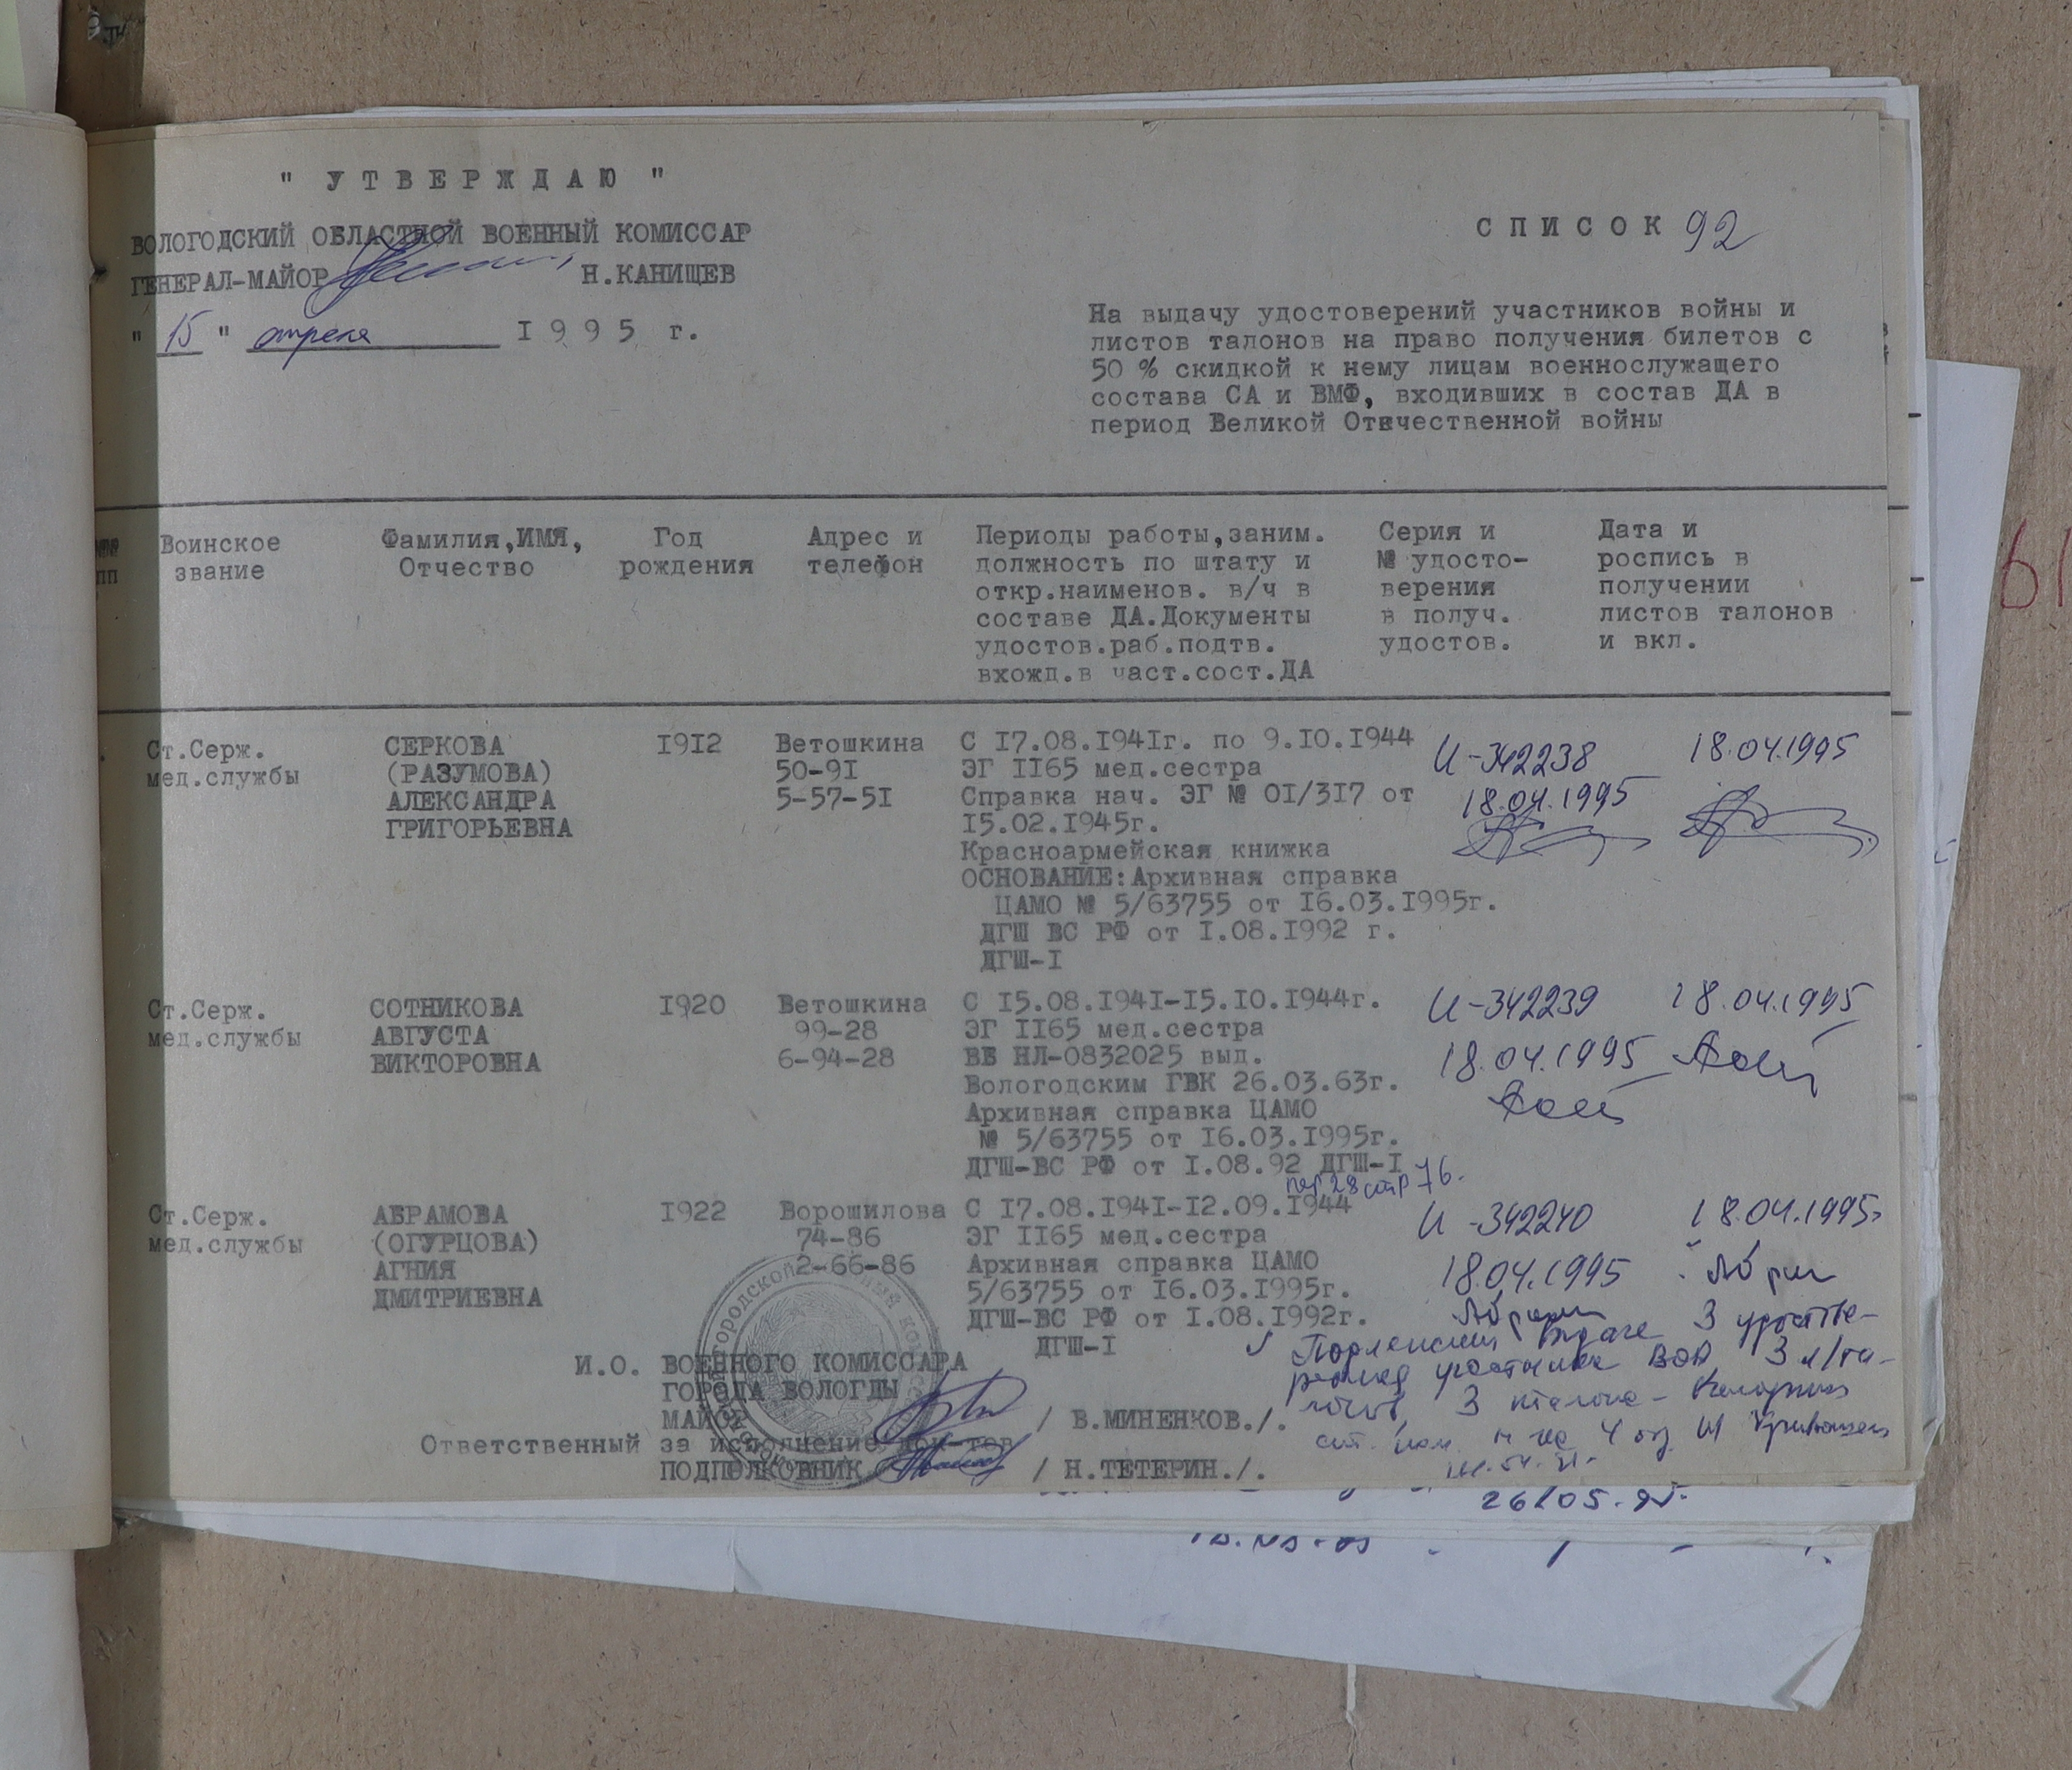 " У Т В Е Р Ж Д А Ю "
ВОЛОГОДСКИЙ ОБЛАСТНОЙ ВОЕННЫЙ КОМИССАР
ГЕНЕРАЛ-МАЙОР Н.КАНИЩЕВ
" 15 " апреля I 9 9 5 г.
С П И С О К 92
На выдачу удостоверений участников войны и
листов талонов на право получения билетов с
50 % скидкой к нему лицам военнослужащего
состава СА и ВМФ, входивших в состав ДА в
период Великой Отечественной войны
пп
Воинское
звание
Фамилия,ИМЯ,
Отчество
Год
рождения
Адрес и
телефон
Периоды работы,заним.
должность по штату и
откр.наименов. в/ч в
составе ДА.Документы
удостов.раб.подтв.
вхожд.в част.сост.ДА
Серия и
№ удосто-
верения
в получ.
удостов.
Дата и
роспись в
получении
листов талонов
и вкл.
Ст.Серж.
мед.службы
СЕРКОВА
(РАЗУМОВА)
АЛЕКСАНДРА
ГРИГОРЬЕВНА
I9I2
Ветошкина
50-9I
5-57-5I
С I7.08.I94Iг. по 9.I0.I944
ЭГ II65 мед.сестра
Справка нач. ЭГ № 0I/3I7 от
I5.02.I945г.
Красноармейская книжка
ОСНОВАНИЕ:Архивная справка
ЦАМО № 5/63755 от I6.03.I995г.
ДГШ ВС РФ от I.08.I992 г.
ДГШ-I
И-342238
18.04.1995
18.04.1995
Ст.Серж.
мед.службы
СОТНИКОВА
АВГУСТА
ВИКТОРОВНА
I920
Ветошкина
99-28
6-94-28
С I5.08.I94I-I5.I0.I944г.
ЭГ II65 мед.сестра
ВБ НЛ-0832025 выд.
Вологодским ГВК 26.03.63г.
Архивная справка ЦАМО
№ 5/63755 от I6.03.I995г.
ДГШ-ВС РФ от I.08.92 ДГШ-I
пер 28 стр 76.
И-342239
18.04.1995
18.04.1995
Ст.Серж.
мед.службы
АБРАМОВА
(ОГУРЦОВА)
АГНИЯ
ДМИТРИЕВНА
I922
Ворошилова
74-86
2-66-86
С I7.08.I94I-I2.09.I944
ЭГ II65 мед.сестра
Архивная справка ЦАМО
5/63755 от I6.03.I995г.
ДГШ-ВС РФ от I.08.I992г.
ДГШ-I
И -342240
18.04.1995
18.04.1995
И.О. ВОЕННОГО КОМИССАРА
ГОРОДА ВОЛОГДЫ
МАЙОР / В.МИНЕНКОВ./.
Ответственный за исполнение док-тов
ПОДПОЛКОВНИК / Н.ТЕТЕРИН./.
3 удостове-
участника ВОВ, 3 л/та-
лонов, 3
26/05.95.
61